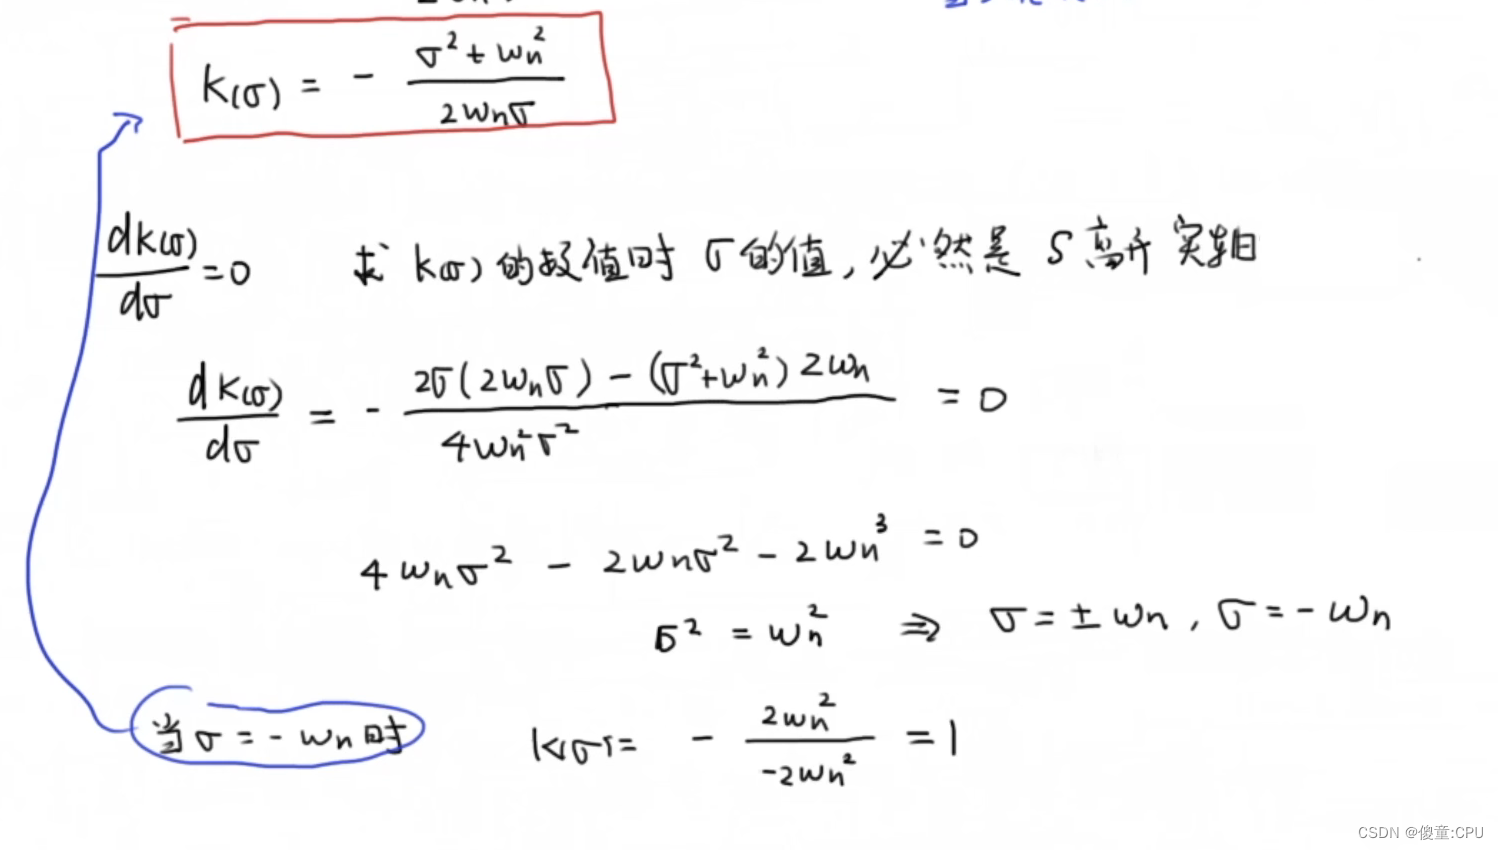 K(σ) = - (σ² + ωn²) / (2ωnσ)
dK(σ)/dσ = 0 求 K(σ) 的极值时 σ的值，必然是 S 离开实轴
dK(σ)/dσ = - (2σ(2ωnσ) - (σ²+ωn²)2ωn) / (4ωn²σ²) = 0
4ωnσ² - 2ωnσ² - 2ωn³ = 0
σ² = ωn² ⇒ σ = ± ωn , σ = - ωn
当 σ = - ωn 时 K(σ) = - 2ωn² / -2ωn² = 1
CSDN @傻童:CPU